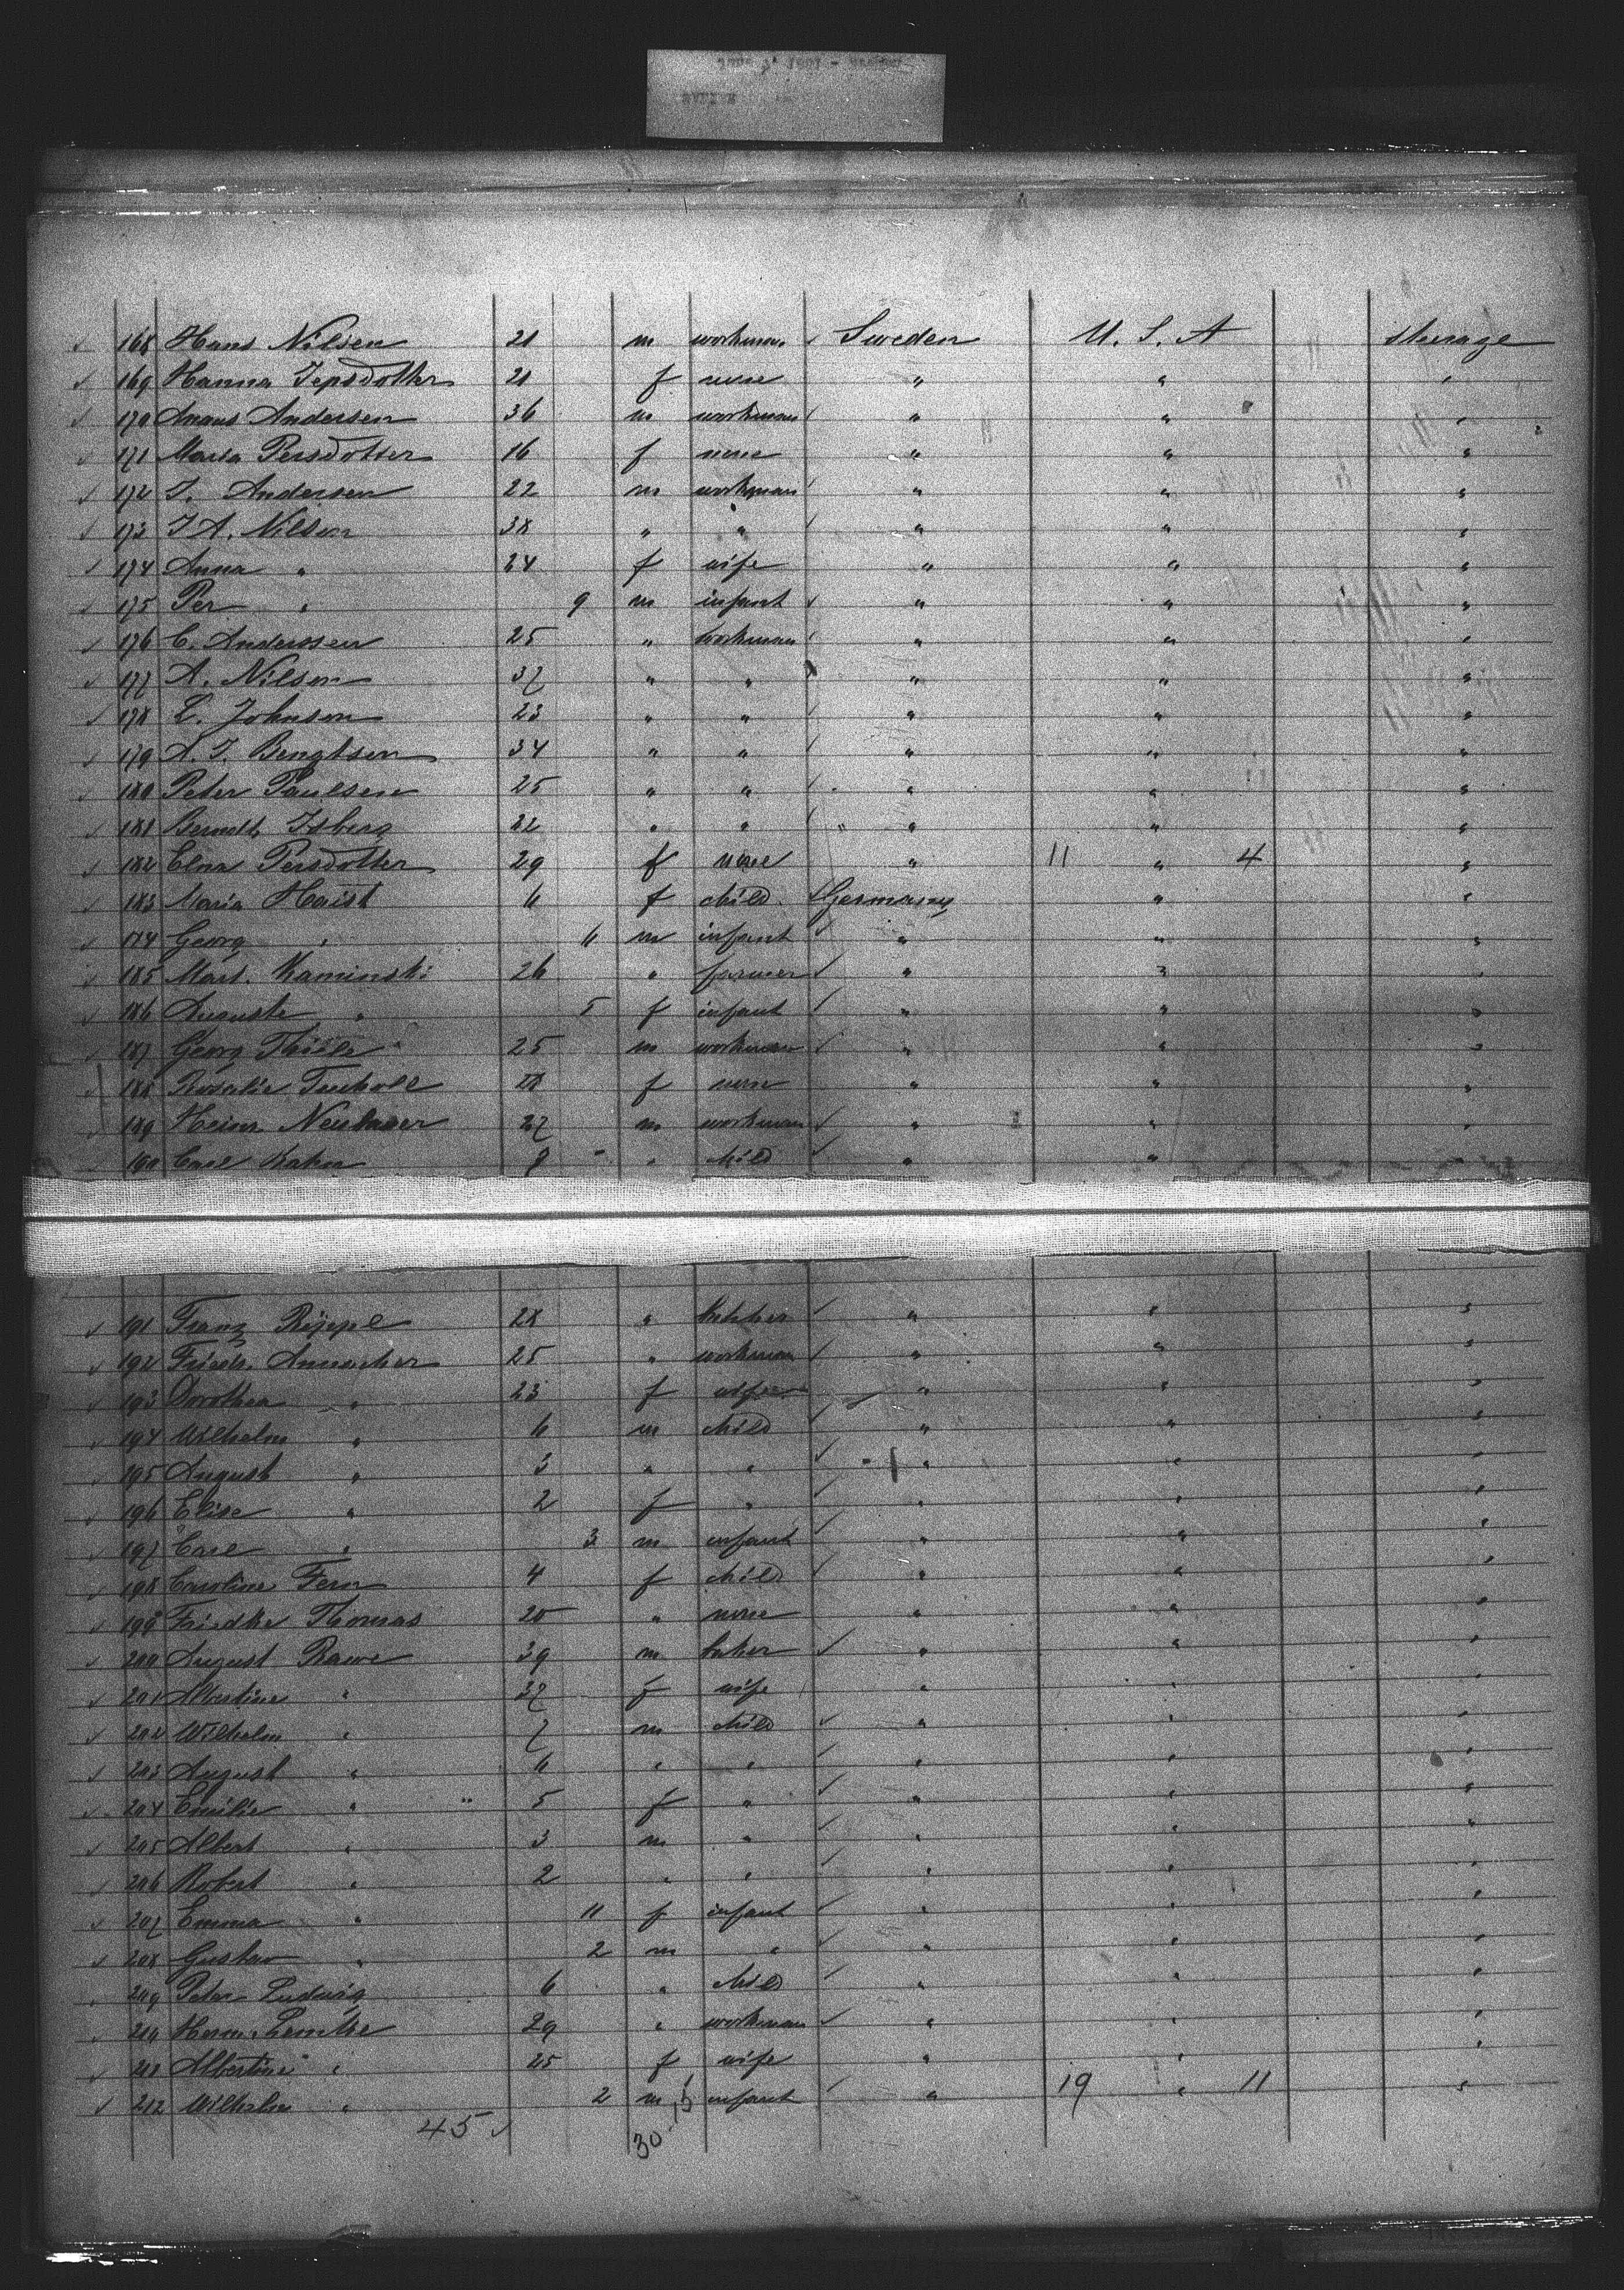 168 Hans Nilsen 21 m workman Sweden U. S. A steerage
169 Hanna Jepsdotter 21 f none " " "
170 Andersen 36 m workman " " "
171 Maria Persdotter 16 f none " " "
172 J. Andersen 22 m workman " " "
173 J A. Nilsen 38 " " " " "
174 Anna " 24 f wife " " "
175 Per " 9 m infant " " "
176 C. Anderssen 25 " workman " " "
177 A. Nilsen 37 " " " " "
178 L. Johnson 23 " " " " "
179 A. J. Bengtsen 34 " " " " "
180 Peter Paulsen 25 " " " " "
181 Berndt Isberg 22 " " " " "
182 Elna Persdotter 29 f none " 11 " 4 "
183 Maria Haist 6 f child Germany " "
184 Georg " 6 m infant " " "
185 Mart. Kaminski 26 " farmer " " "
186 Auguste " 5 f infant " " "
187 Georg Thiele 25 m workman " " "
188 Rosalie 18 f none " " "
189 Heinr. Neubauer 27 m workman " " "
190 Carl Kahn 9 " child " " "
191 Franz Rippl 28 " " " "
192 Friedr. 25 " workman " " "
193 Dorothea " 23 f wife " " "
194 Wilhelm " 6 m child " " "
195 August " 3 " " " " "
196 Elise " 2 f " " " "
197 Carl " 3 m infant " " "
198 Caroline Fern 4 f child " " "
199 Friedke Thomas 20 " none " " "
200 August Rawe 39 m baker " " "
201 Albertine " 37 f wife " " "
202 Wilhelm " 7 m child " " "
203 August " 6 " " " " "
204 Emilie " 5 f " " " "
205 Albert " 3 m " " " "
206 Robert " 2 " " " " "
207 Emma " 11 f infant " " "
208 Gustav " 2 m " " " "
209 Peter Ludwig 6 " child " " "
210 Herm. Lemke 29 " workman " " "
211 Albertine " 25 f wife " " "
212 Wilhelm " 2 m infant " 19 " 11 "
45 30 15